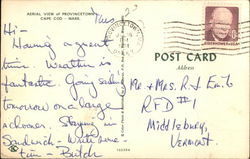 AERIAL VIEW of PROVINCETOWN
CAPE COD - MASS.
Tues
Hi -
Having a great
time. Weather is
fantastic. Going sailing
tomorrow on a large
schooner. Staying
Sandwich - Write sure
POST CARD
Address
Mr + Mrs. R. H.
RFD #1
Middlebury,
Vermont.
EISENHOWER·USA